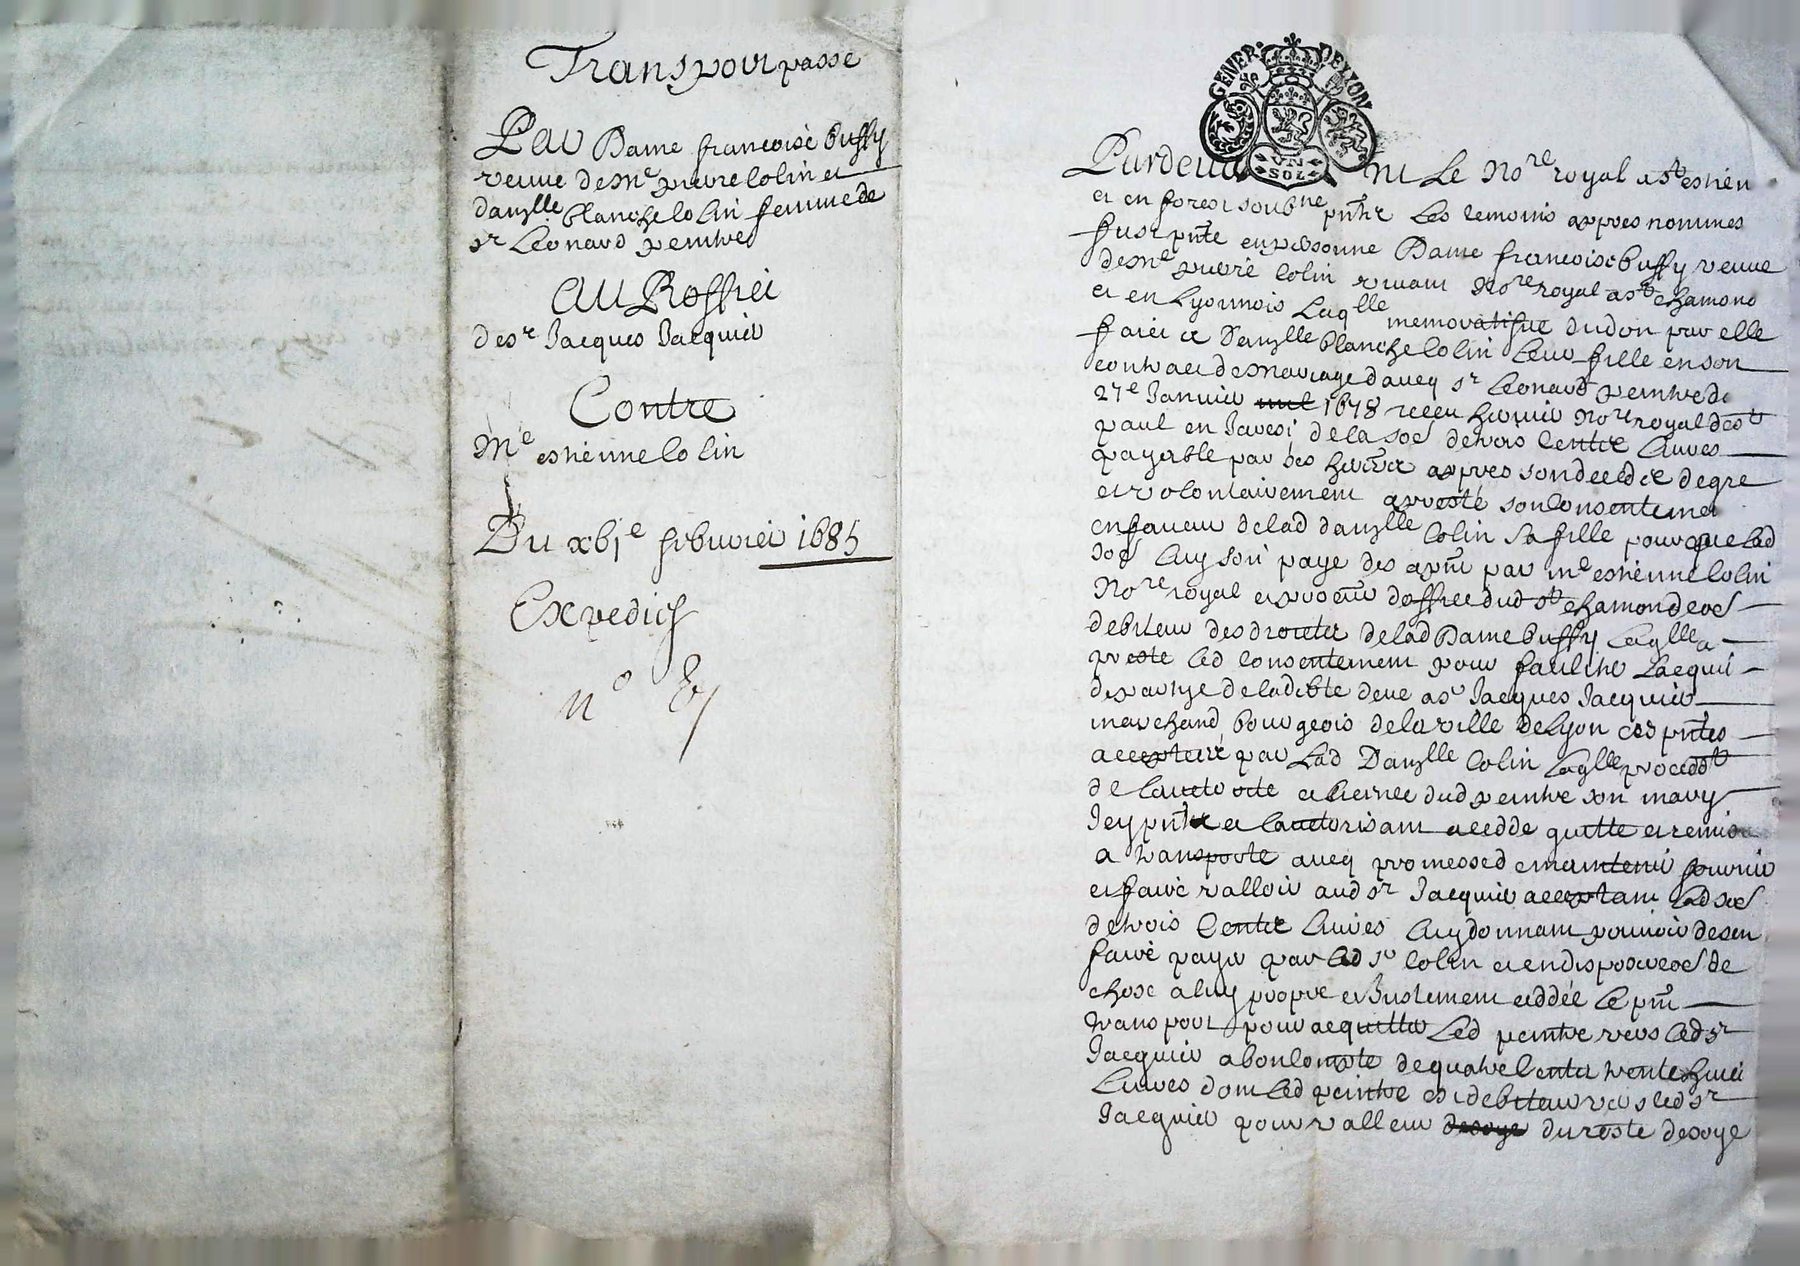 Transpour passé
Par Dame francoise buffy
veuve de Me pierre Colin et
damlle blanche Colin femme de
sr Leonard peintre
Au Proffict
de sr Jacques Jacquier
Contre
Me estienne Colin
Du xbje febvrier 1685
Expedié
no
GENER. DE LYON
VN
SOL
Pardevant Le Nore royal a st estiene
et en forest soubne pnt Les temoins appres nommes
fust pnte en personne Dame francoise buffy veuve
de Me pierre Colin vivant Nore royal a st chamond
et en Lyonnois Laqlle memorative du don par elle
faict a Damlle blanche Colin leur fille en son
contract de mariage d'avecq sr Leonard peintre du
27e Janvier 1678 receu Nore royal de st
paul en Jarest de la soe de trois Centz livres
payable par ses appres son decedz de gre
et volontairement a presté son consentement
en faveur de lad damlle Colin sa fille pour que lad
soe luy soit payé des a pnt par me estienne Colin
Nore royal et d'office dud st chamond
debiteur des droictz de lad Dame buffy Laqlle a
presté led consentement pour
de la debte deue a sr Jacques Jacquier
marchand bourgeois de la ville de Lyon ces pntes
acceptant par Lad Damlle Colin Laqlle procedt
de lauctorité et licence dud peintre son mary
Jcy pnt et lauctorisant a cedde quitté et remis
a transporté avecq promesse de maintenir fournir
et faire valloir aud sr Jacquier acceptant lad soe
de trois Centz livres luy donnant pouvoir de s'en
faire payer par led sr Colin et en disposer de
chose a luy propre et Justement ceddée le pnt
transport pour acquitter Led peintre vers led sr
Jacquier a bon compte de quatre Centz trente huict
Livres dont led peintre est debiteur vers led sr
Jacquier pour valleur du reste de soye